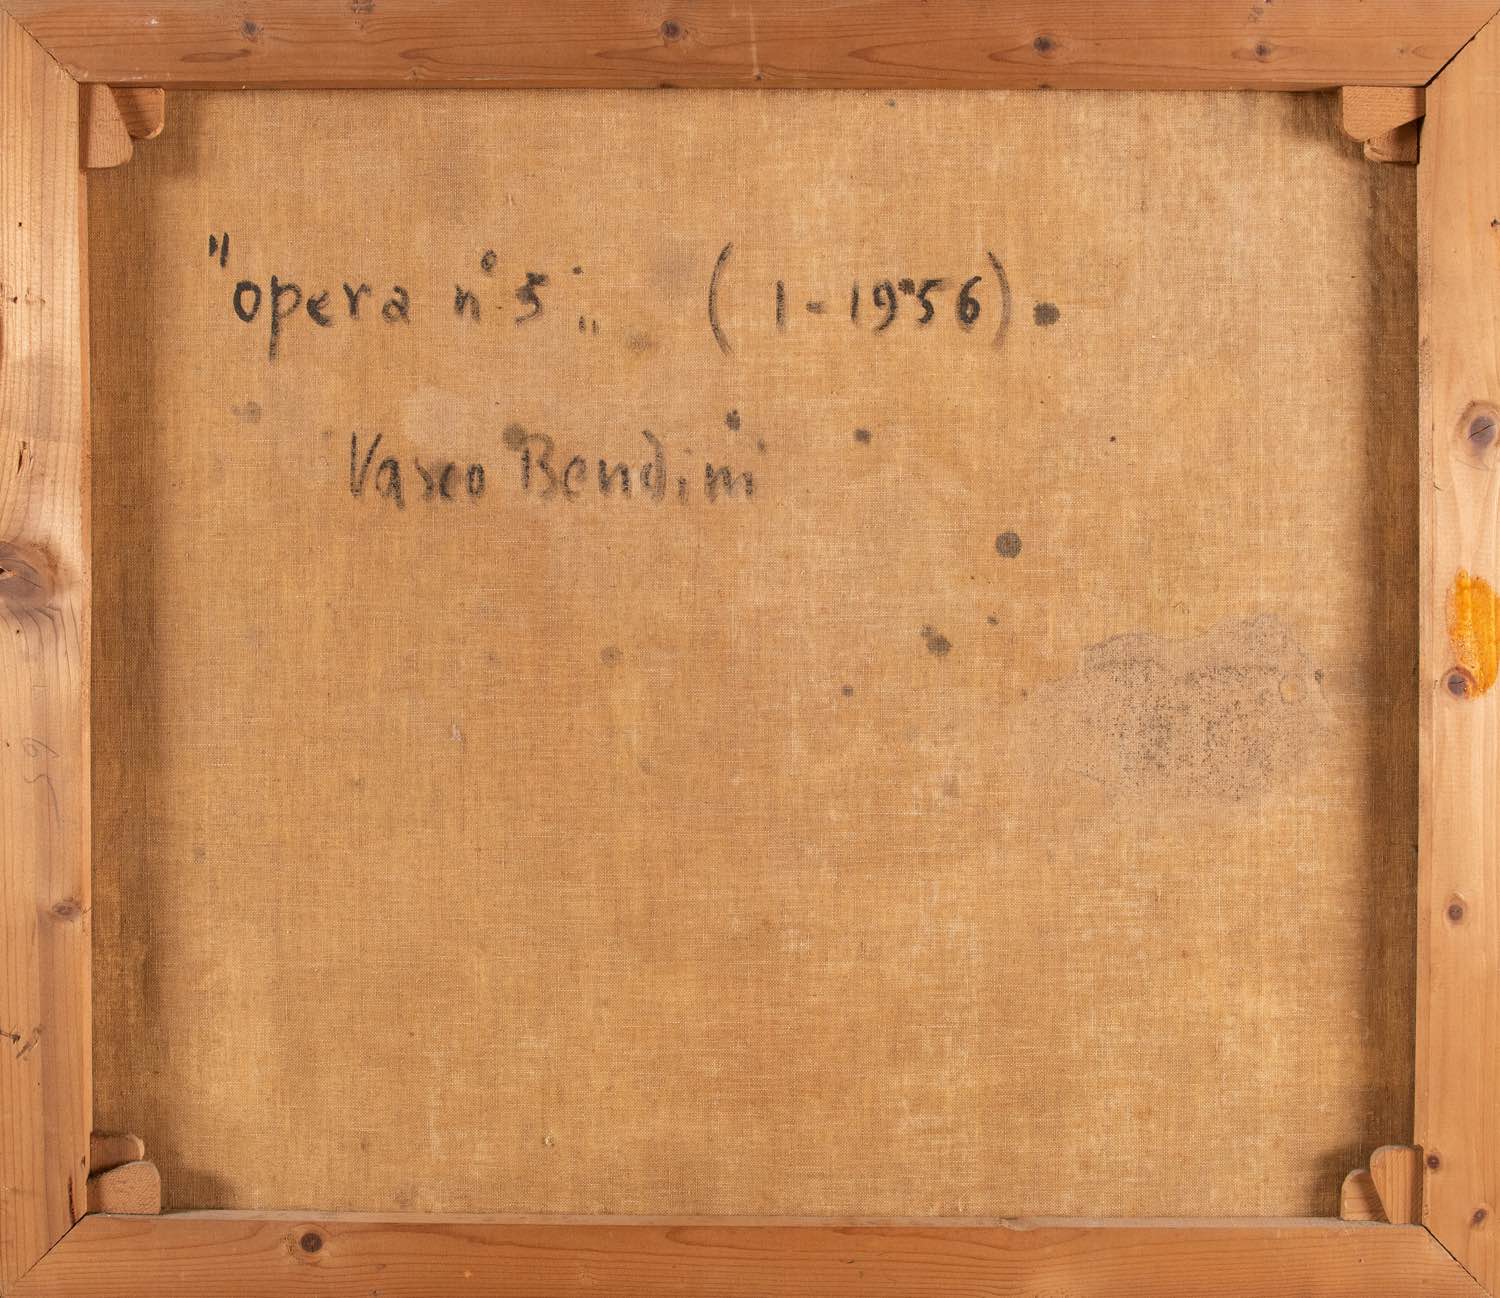 "opera n° 5" (1-1956).
Vasco Bendini